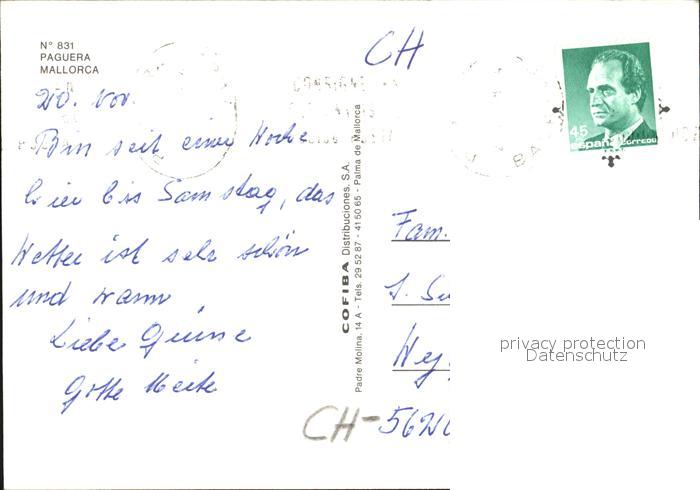 N° 831
PAGUERA
MALLORCA
20. Nov.
Bin seit einer Woche
hier bis Samstag, das
Wetter ist sehr schön
und warm
Liebe Grüsse
Gotte Meite
COFIBA Distribuciones, S.A.
Padre Molina, 14 A - Tels. 29 52 87 - 41 50 65 - Palma de Mallorca
CH
45
españa CORREOS
Fam.
Weg
CH-562
privacy protection
Datenschutz